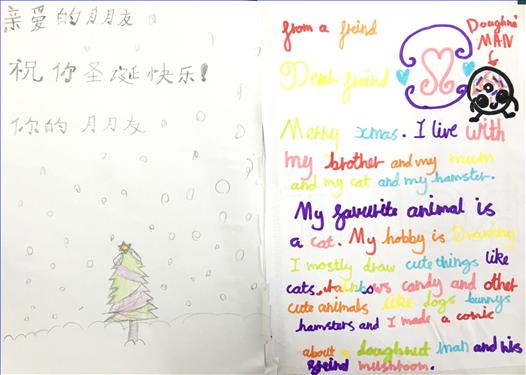 亲爱的月月友
祝你圣诞快乐!
你的月月友
from a freind
Doughnut
MAN
Dear freind
Merry xmas. I live with
my brother and my mum
and my cat and my hamster.
My favurite animal is
a cat. My hobby is Drawing
I mostly draw cute things like
cats, rainbows candy and other
cute animals like dogs bunnys
hamsters and I made a comic
about a doughnut man and his
freind mushroom.